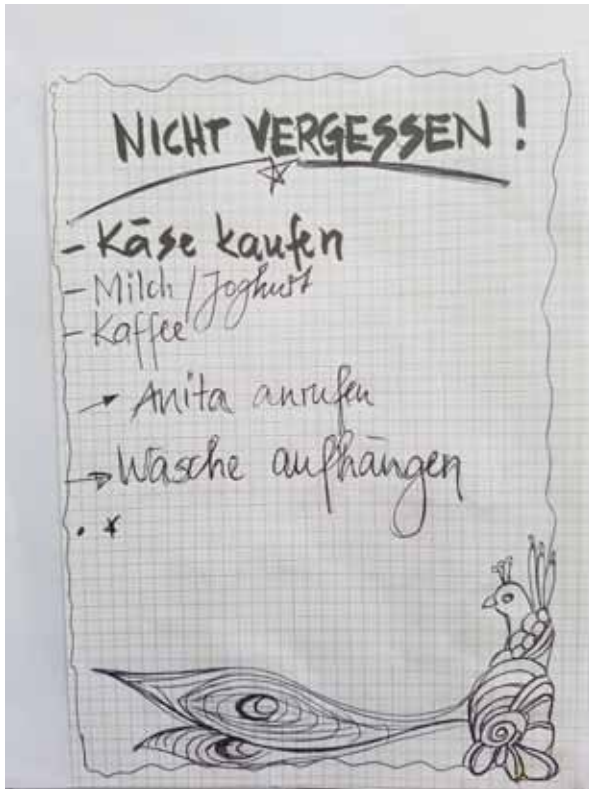 NICHT VERGESSEN!
- Käse kaufen
- Milch / Joghurt
- Kaffee
→ Anita anrufen
→ Wäsche aufhängen